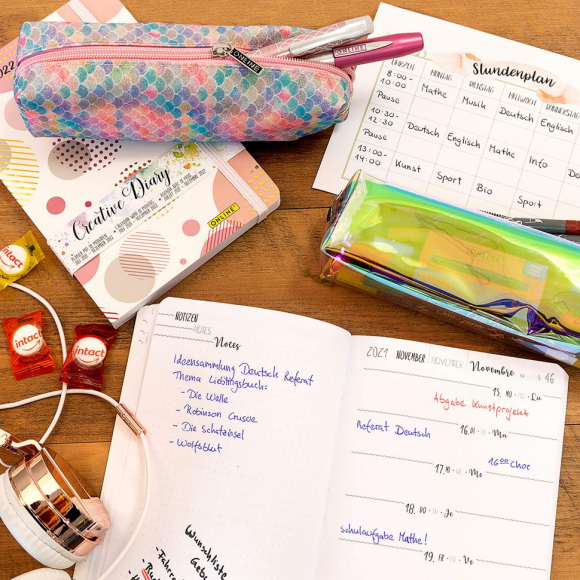 2022
ONLINE
Creative Diary
ONLINE
intact
intact
intact
Stundenplan
UHRZEIT MONTAG DIENSTAG MITTWOCH DONNERSTAG
8:00-10:00 Mathe Musik Deutsch Englisch
Pause
10:30-12:30 Deutsch Englisch Mathe Info
Pause
13:00-14:00 Kunst Sport Bio Sport
NOTIZEN
NOTES
Notes
Ideensammlung Deutsch Referat
Thema Lieblingsbuch:
- Die Welle
- Robinson Crusoe
- Die Schatzinsel
- Wolfsblut
Wunschliste
2021 NOVEMBER | NOVEMBER | Novembre 46
15. MO · Lu
Abgabe Kunstprojekt
16. DI · Ma
Referat Deutsch
16⁰⁰ Chor
17. MI · Me
18. DO · Je
Schulaufgabe Mathe!
19. FR · Ve